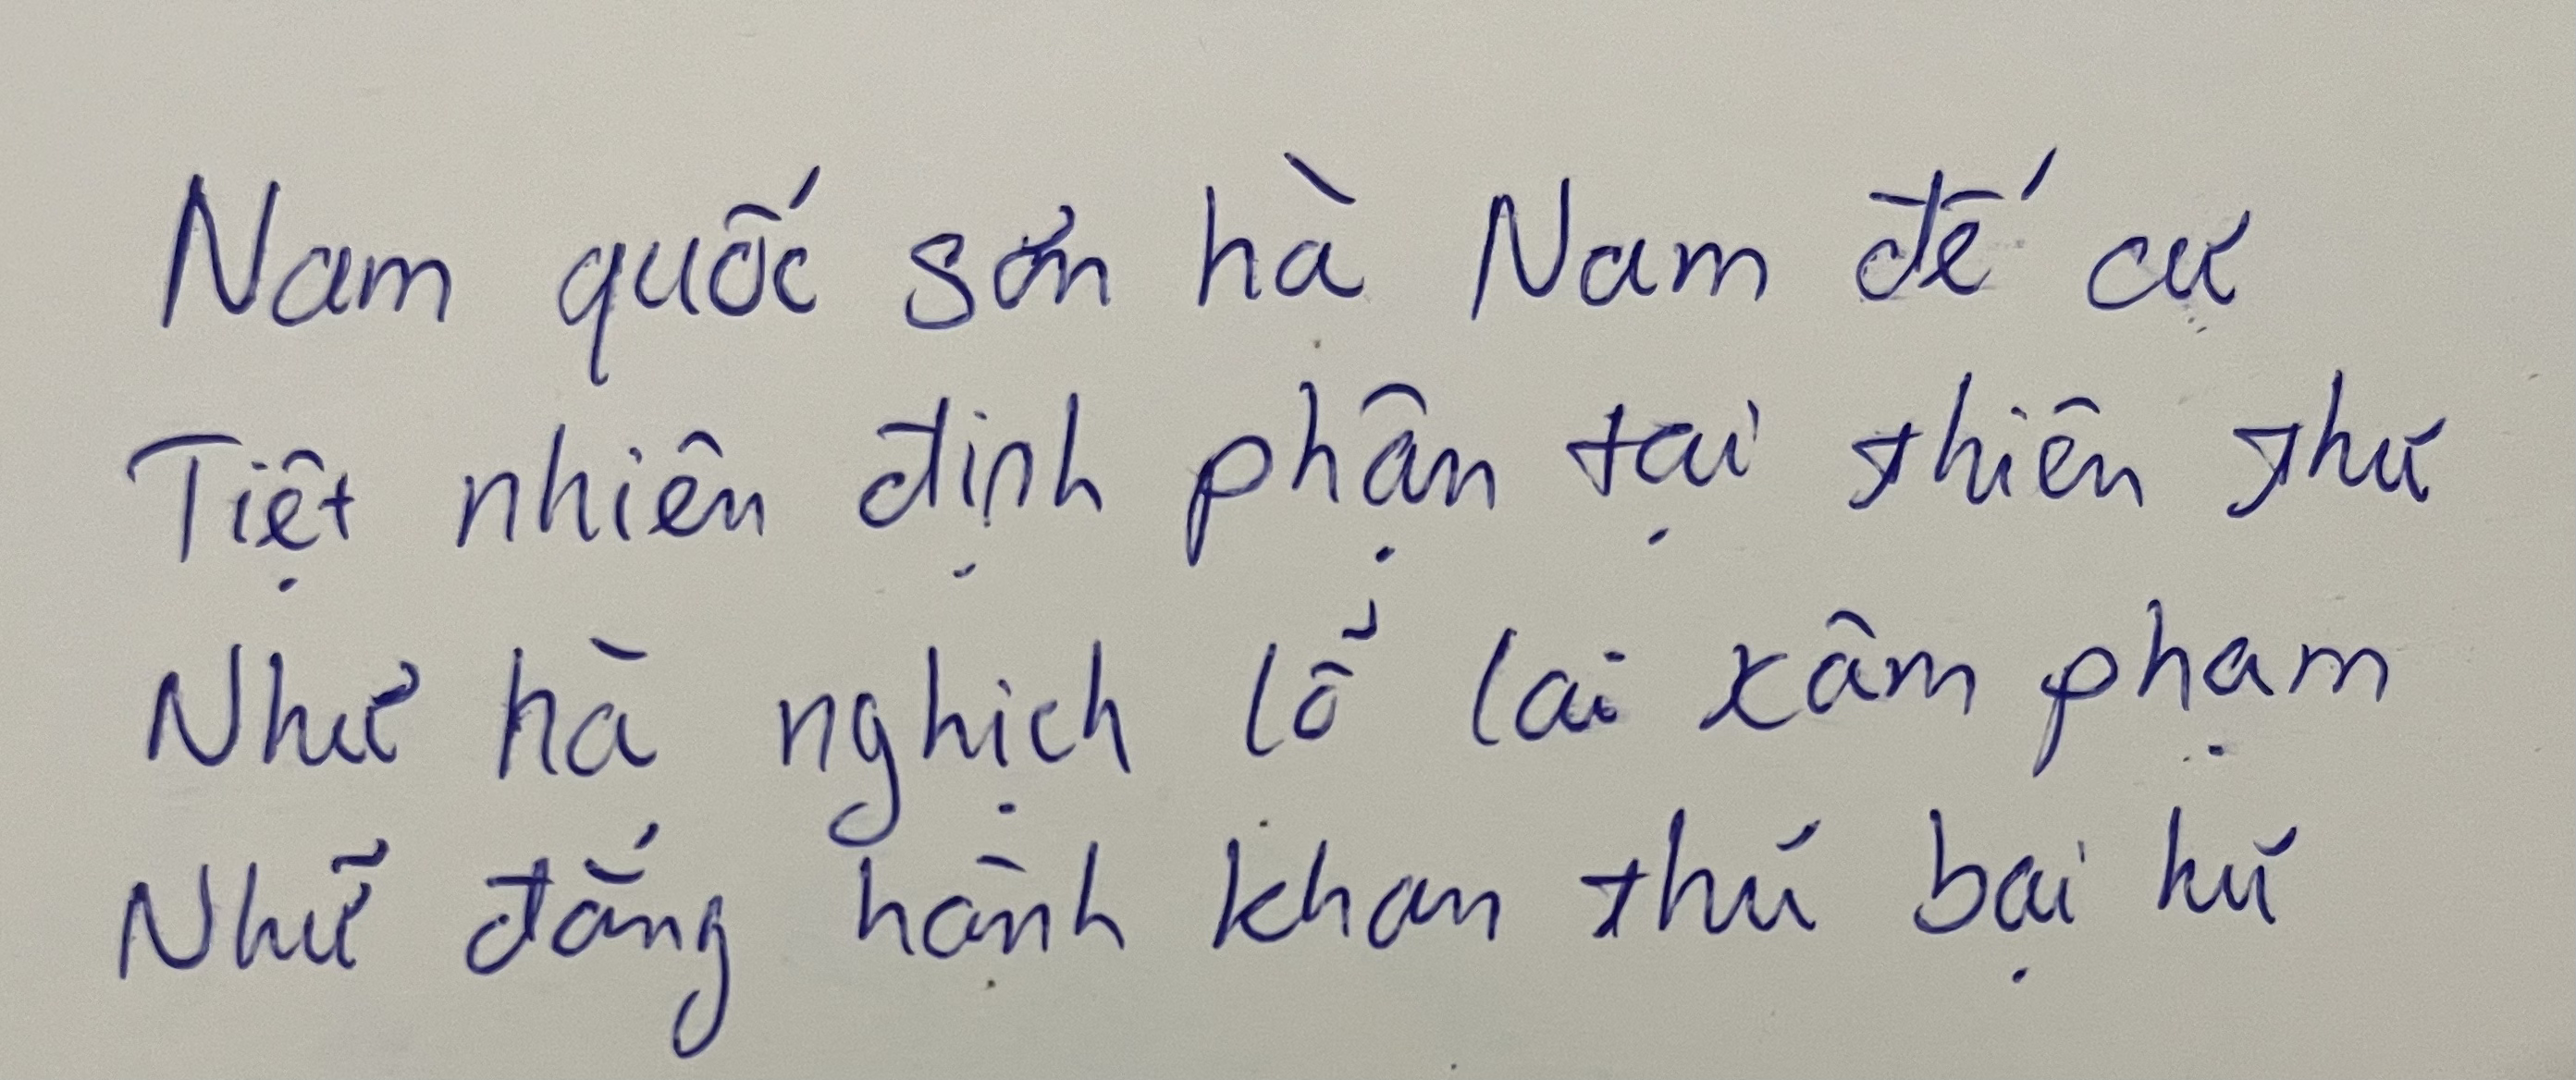 Nam quốc sơn hà Nam đế cư
Tiệt nhiên định phận tại thiên thư
Như hà nghịch lỗ lai xâm phạm
Nhữ đẳng hành khan thủ bại hư